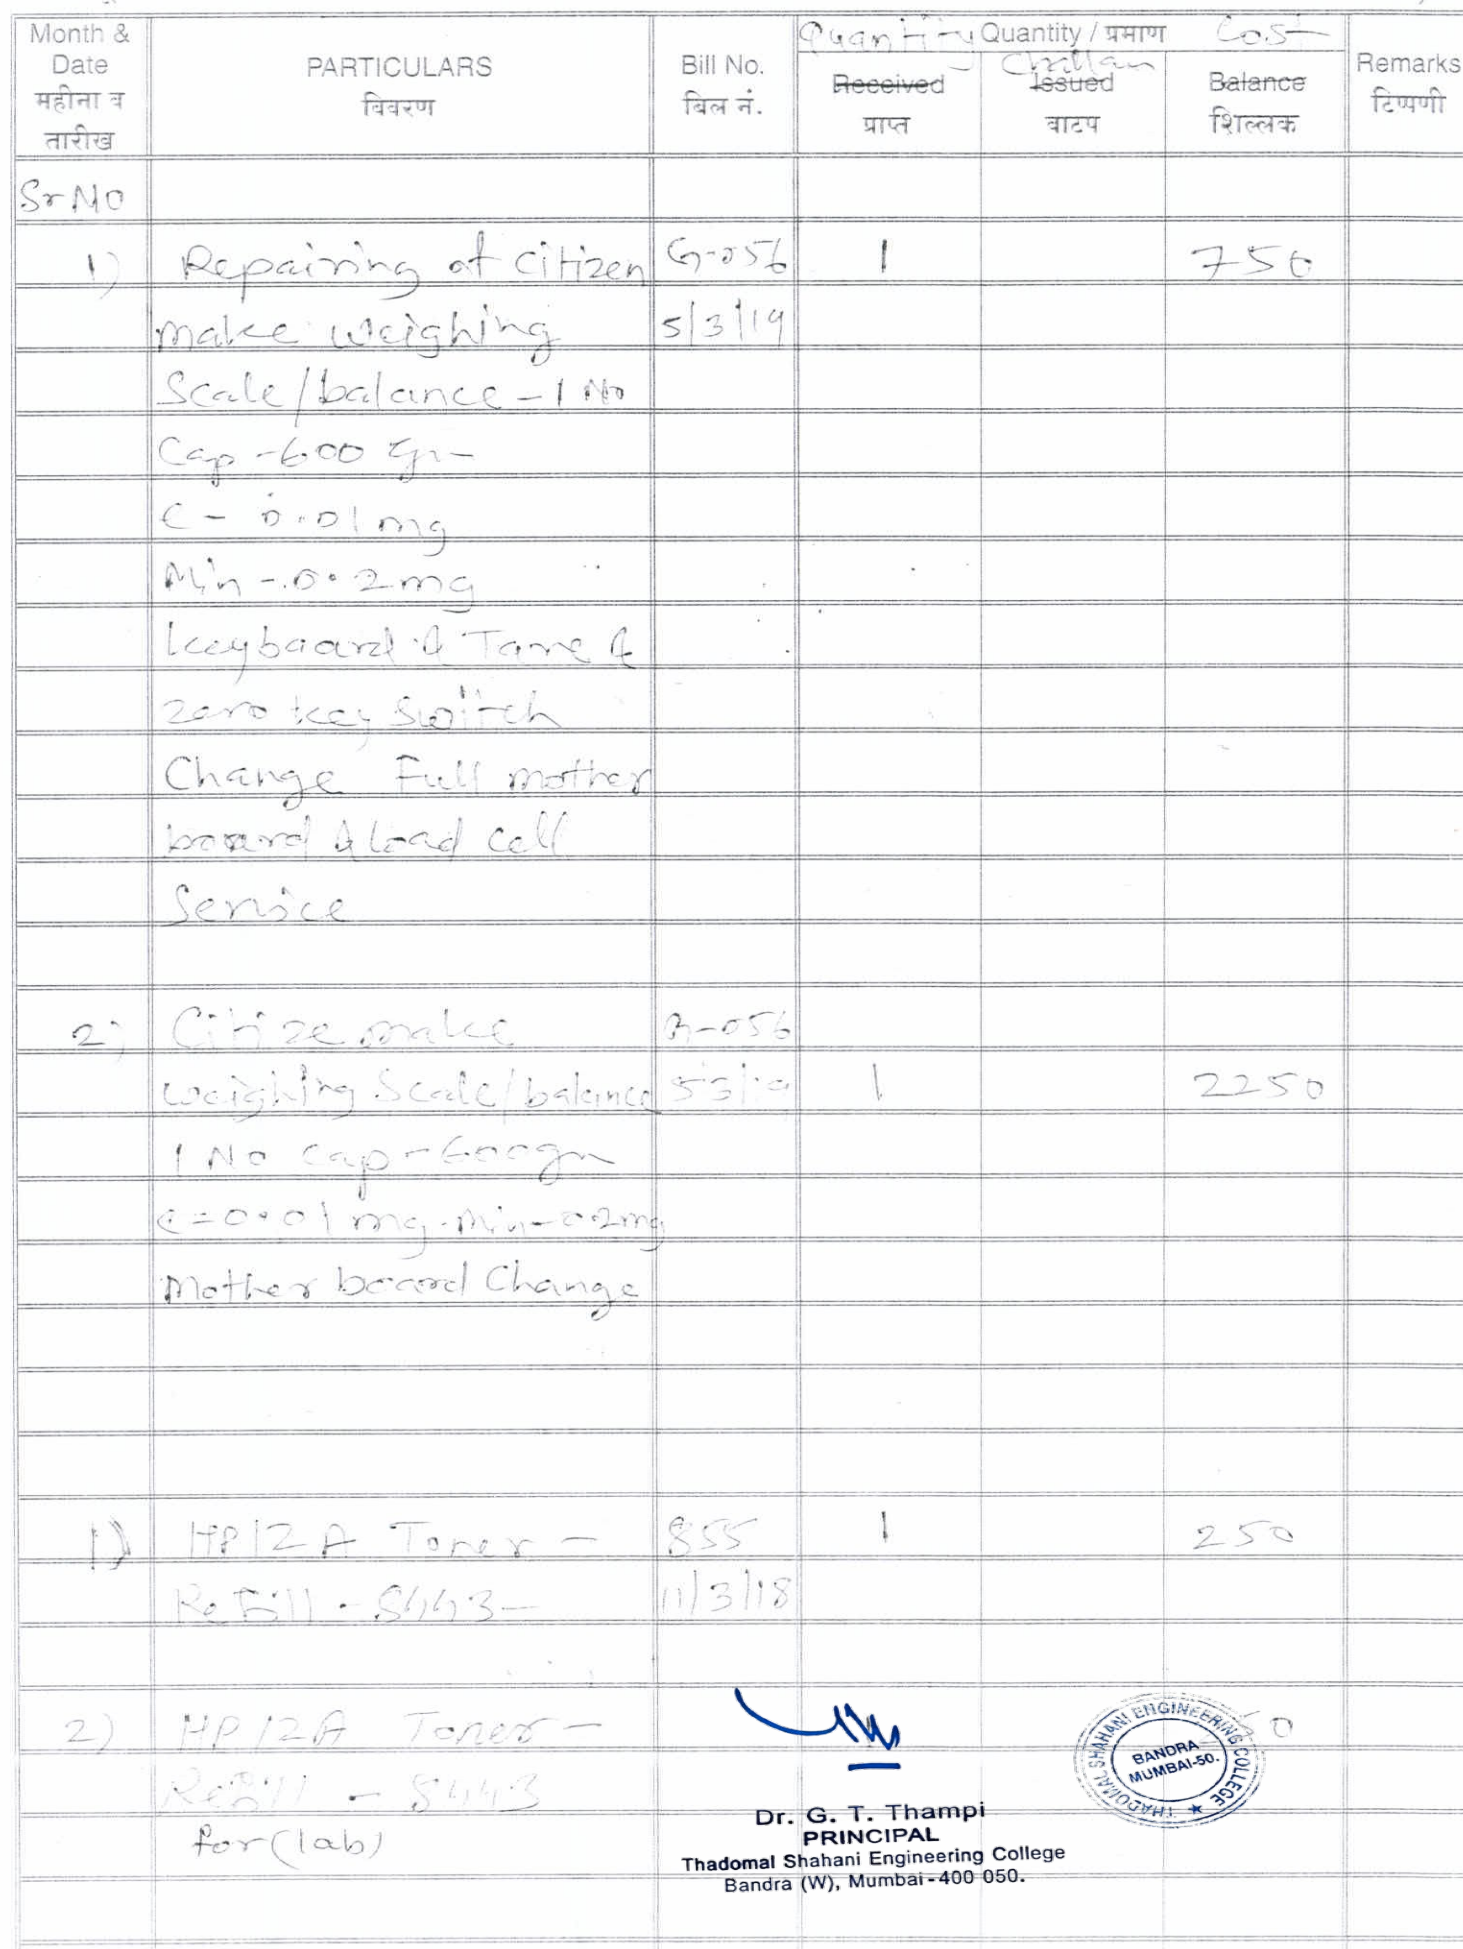 Month & Date महीना व तारीख
PARTICULARS विवरण
Bill No. बिल नं.
Quantity Quantity / प्रमाण Cost
Received प्राप्त
Challan Issued वाटप
Balance शिल्लक
Remarks टिप्पणी
Sr No
1) Repairing of Citizen G-056 1 750
make weighing 5/3/19
Scale/balance - 1 No
Cap - 600 gm
e - 0.01 mg
Min - 0.2 mg
keyboard & Tare &
zero key switch
Change Full mother
board & Load cell
Service
2) Citize make G-056
weighing Scale/balance 5/3/19 1 2250
1 No Cap - 600 gm
e = 0.01 mg. Min - 0.2 mg
Mother board Change
1) HP 12 A Toner - 855 1 250
Refill - 8443 - 11/3/18
2) HP 12A Toner -
Refill - 8443
for (lab)
Dr. G. T. Thampi
PRINCIPAL
Thadomal Shahani Engineering College
Bandra (W), Mumbai - 400 050.
THADOMAL SHAHANI ENGINEERING COLLEGE ★
BANDRA
MUMBAI-50.